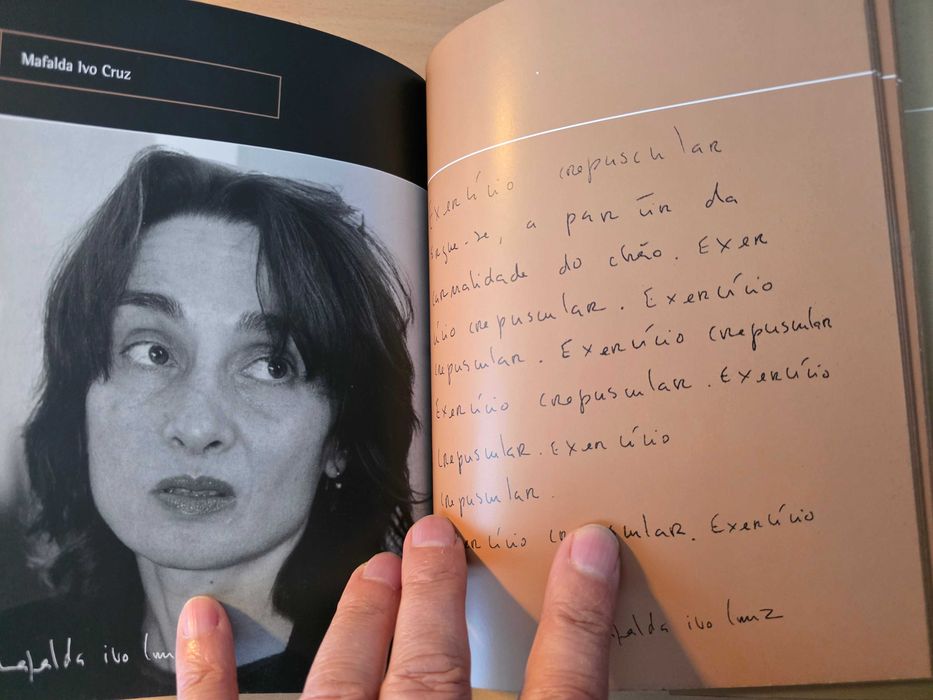 Mafalda Ivo Cruz
Exercício crepuscular
ergue-se, a partir da
carnalidade do chão. Exer
cício crepuscular. Exercício
crepuscular. Exercício crepuscular
Exercício crepuscular. Exercício
crepuscular. Exercício
crepuscular.
Exercício crepuscular. Exercício
Mafalda Ivo Cruz
Mafalda Ivo Cruz